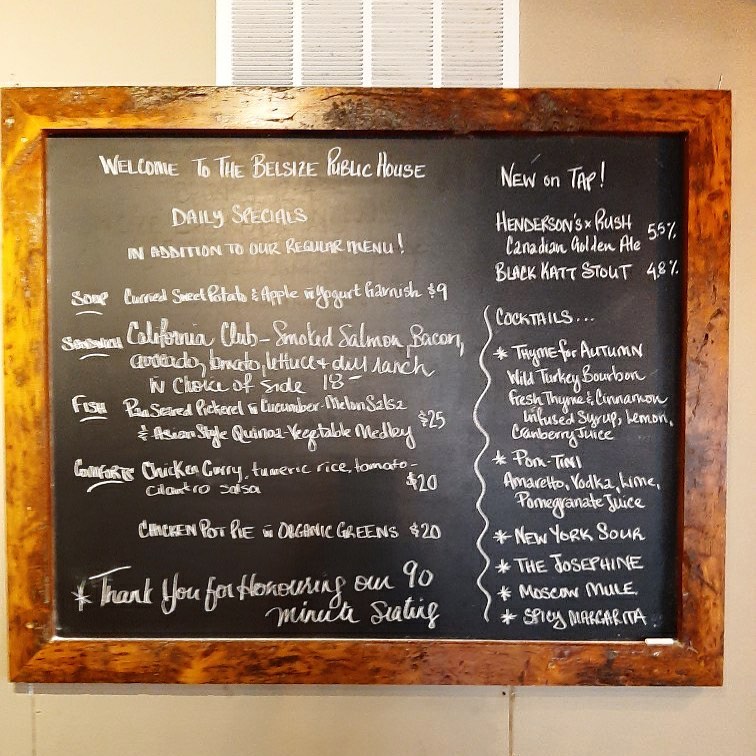 WELCOME TO THE BELSIZE PUBLIC HOUSE
DAILY SPECIALS
IN ADDITION TO OUR REGULAR MENU!
SOUP Curried Sweet Potato & Apple w Yogurt Garnish $9
SANDWICH California Club - Smoked Salmon, Bacon,
avocado, tomato, lettuce + dill ranch
w Choice of side 18-
FISH Pan Seared Pickerel w Cucumber-Melon Salsa
& Asian Style Quinoa-Vegetable Medley $25
COMFORTS Chicken Curry, tumeric rice, tomato-
cilantro salsa $20
CHICKEN POT PIE w ORGANIC GREENS $20
* Thank You for Honouring our 90
minute Seating
NEW ON TAP!
HENDERSON'S x RUSH
Canadian Golden Ale 5.5%
BLACK KATT STOUT 4.8%
COCKTAILS...
* THYME for AUTUMN
Wild Turkey Bourbon
Fresh Thyme & Cinnamon
Infused Syrup, Lemon,
Cranberry Juice
* POM-TINI
Amaretto, Vodka, Lime,
Pomegranate Juice
* NEW YORK SOUR
* THE JOSEPHINE
* MOSCOW MULE
* SPICY MARGARITA